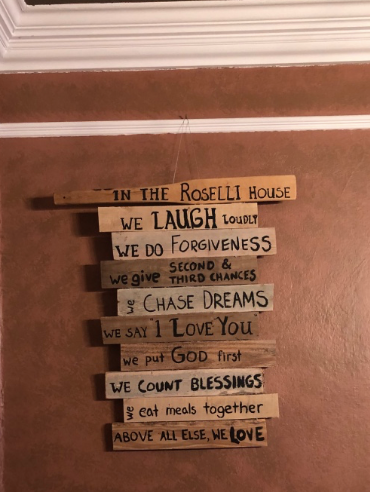 IN THE ROSELLI HOUSE
WE LAUGH LOUDLY
WE DO FORGIVENESS
we give SECOND & THIRD CHANCES
we CHASE DREAMS
WE SAY I LOVE YOU
we put GOD first
WE COUNT BLESSINGS
we eat meals together
ABOVE ALL ELSE, WE LOVE